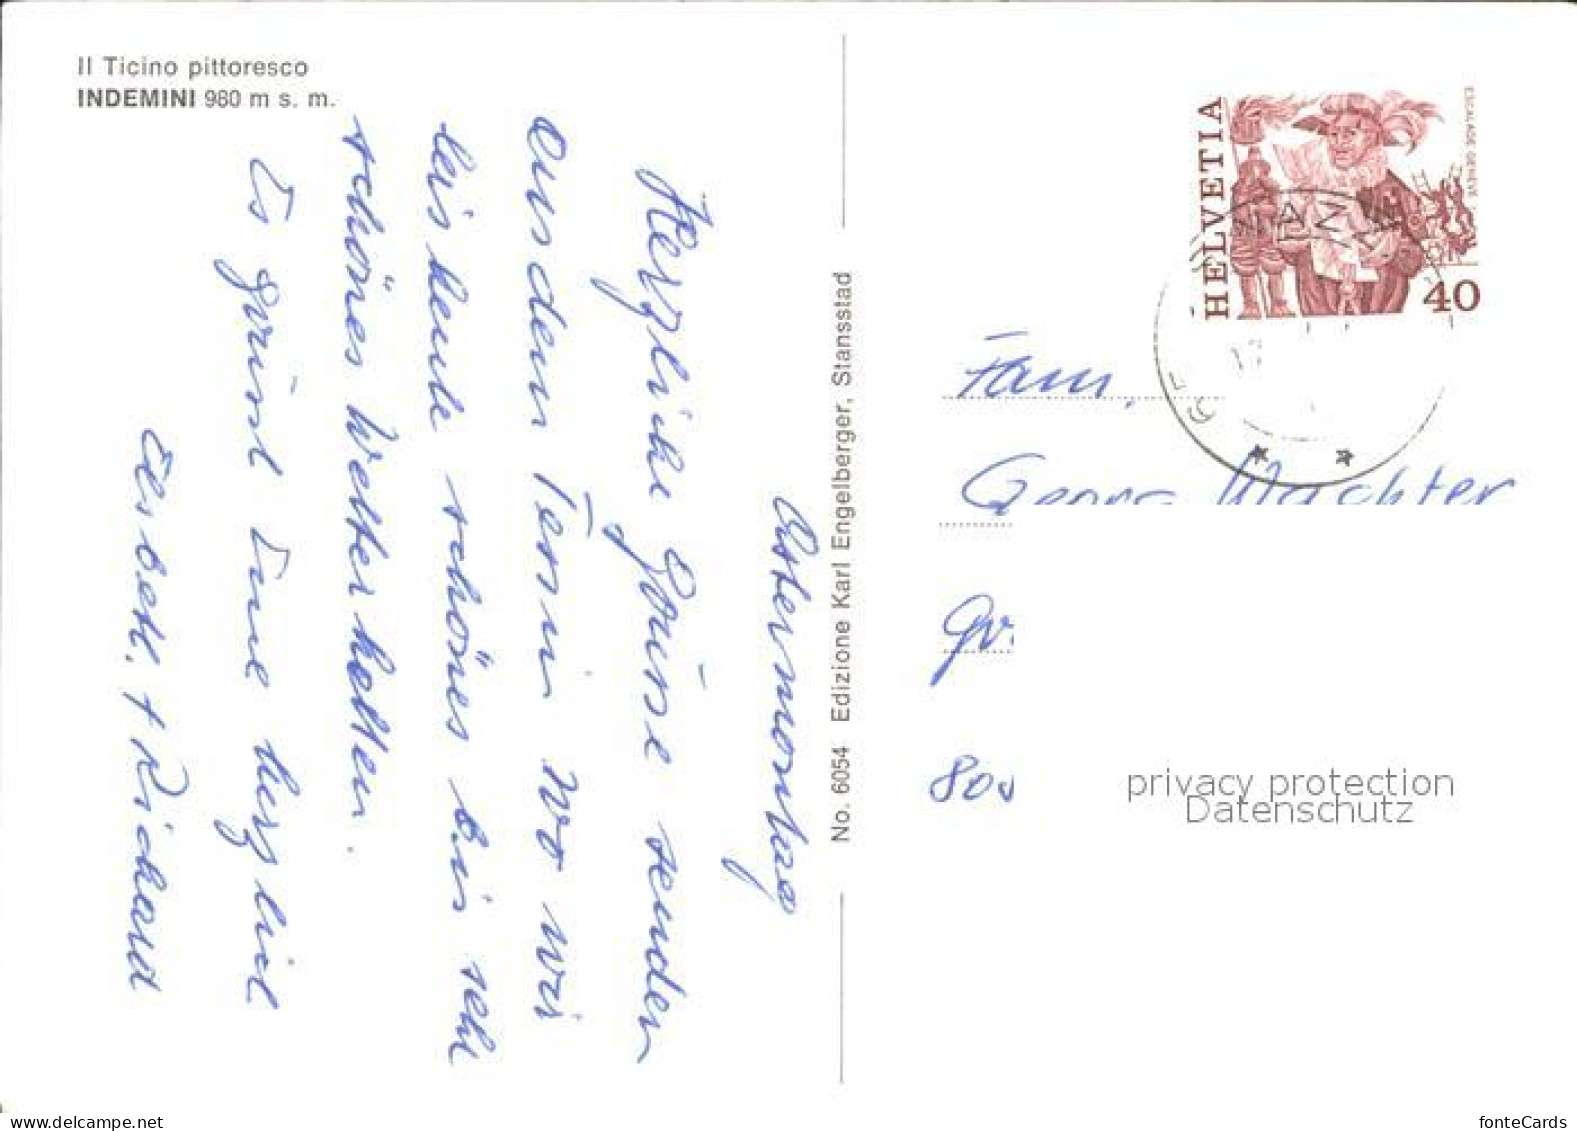 Il Ticino pittoresco
INDEMINI 980 m s. m.
Ostermontag
Herzliche Grüsse senden
aus dem Tessin wo wir
bis heute schönes bis sehr
schönes Wetter hatten.
Es grüsst Eure herzlich
Elsbeth. + Richard
No. 6054 Edizione Karl Engelberger, Stansstad
HELVETIA
ESCALADE GENÈVE
40
Fam.
Georg Wachter
Gr
80
privacy protection
Datenschutz
www.delcampe.net
fonteCards